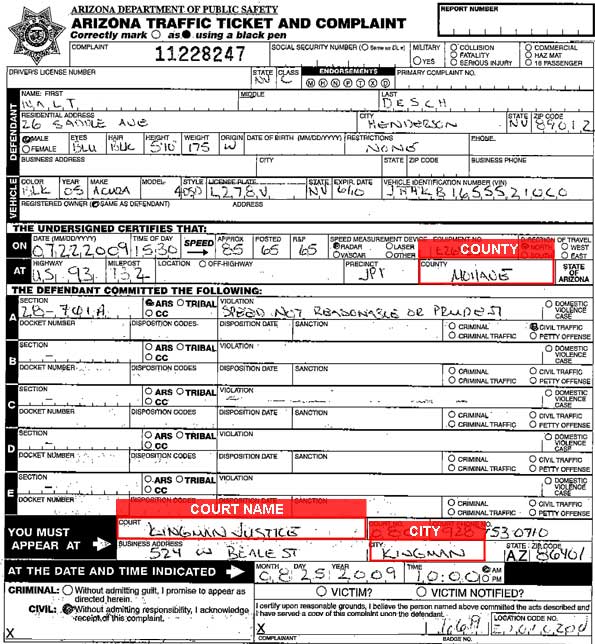 ARIZONA DEPARTMENT OF PUBLIC SAFETY
ARIZONA TRAFFIC TICKET AND COMPLAINT
Correctly mark as using a black pen
REPORT NUMBER
COMPLAINT 11228247 SOCIAL SECURITY NUMBER MILITARY YES COLLISION FATALITY SERIOUS INJURY COMMERCIAL HAZ MAT 16 PASSENGER
DRIVER'S LICENSE NUMBER STATE NV CLASS C ENDORSEMENTS M H N P T X D PRIMARY COMPLAINT NO.
DEFENDANT
NAME: FIRST WALT MIDDLE LAST DESCH
RESIDENTIAL ADDRESS 26 SADDLE AVE CITY HENDERSON STATE NV ZIP CODE 89012
MALE FEMALE EYES BLU HAIR BLK HEIGHT 510 WEIGHT 175 ORIGIN W DATE OF BIRTH (MM/DD/YYYY) RESTRICTIONS NONE PHONE
BUSINESS ADDRESS CITY STATE ZIP CODE PHONE
VEHICLE
COLOR BLK YEAR 05 MAKE ACURA MODEL STYLE 4DSD LICENSE PLATE STATE NV EXPIR. DATE VEHICLE IDENTIFICATION NUMBER (VIN)
REGISTERED OWNER (SAME AS DEFENDANT) ADDRESS
THE UNDERSIGNED CERTIFIES THAT:
ON DATE (MM/DD/YYYY) 07,22,2009 TIME OF DAY 15:30 SPEED APPROX 85 POSTED 65 R&P 65 SPEED MEASUREMENT DEVICE RADAR LASER VASCAR OTHER COUNTY NORTH SOUTH DIRECTION OF TRAVEL WEST EAST
AT HIGHWAY US 93 MILEPOST 132 LOCATION OFF-HIGHWAY PRECINCT COUNTY MOHAVE STATE OF ARIZONA
THE DEFENDANT COMMITTED THE FOLLOWING:
A SECTION 28-701A ARS TRIBAL CC VIOLATION SPEED NOT REASONABLE OR PRUDENT DOMESTIC VIOLENCE CASE
DOCKET NUMBER DISPOSITION CODES DISPOSITION DATE SANCTION CRIMINAL CRIMINAL TRAFFIC CIVIL TRAFFIC PETTY OFFENSE
B SECTION ARS TRIBAL CC VIOLATION DOMESTIC VIOLENCE CASE
DOCKET NUMBER DISPOSITION CODES DISPOSITION DATE SANCTION CRIMINAL CRIMINAL TRAFFIC CIVIL TRAFFIC PETTY OFFENSE
C SECTION ARS TRIBAL CC VIOLATION DOMESTIC VIOLENCE CASE
DOCKET NUMBER DISPOSITION CODES DISPOSITION DATE SANCTION CRIMINAL CRIMINAL TRAFFIC CIVIL TRAFFIC PETTY OFFENSE
D SECTION ARS TRIBAL CC VIOLATION DOMESTIC VIOLENCE CASE
DOCKET NUMBER DISPOSITION CODES DISPOSITION DATE SANCTION CRIMINAL CRIMINAL TRAFFIC CIVIL TRAFFIC PETTY OFFENSE
E SECTION ARS TRIBAL CC VIOLATION DOMESTIC VIOLENCE CASE
DOCKET NUMBER DISPOSITION DATE SANCTION CRIMINAL CRIMINAL TRAFFIC CIVIL TRAFFIC PETTY OFFENSE
COURT NAME
YOU MUST APPEAR AT COURT KINGMAN JUSTICE CITY 753-0710
BUSINESS ADDRESS 524 W BEALE ST CITY KINGMAN STATE AZ ZIP CODE 86401
AT THE DATE AND TIME INDICATED MONTH 08 DAY 25 YEAR 2009 TIME 10:00 AM PM
CRIMINAL: Without admitting guilt, I promise to appear as directed herein.
CIVIL: Without admitting responsibility, I acknowledge receipt of this complaint.
VICTIM? VICTIM NOTIFIED?
I certify upon reasonable grounds, I believe the person named above committed the acts described and I have served a copy of this complaint upon the defendant.
X X COMPLAINANT BADGE NO. LOCATION CODE NO.